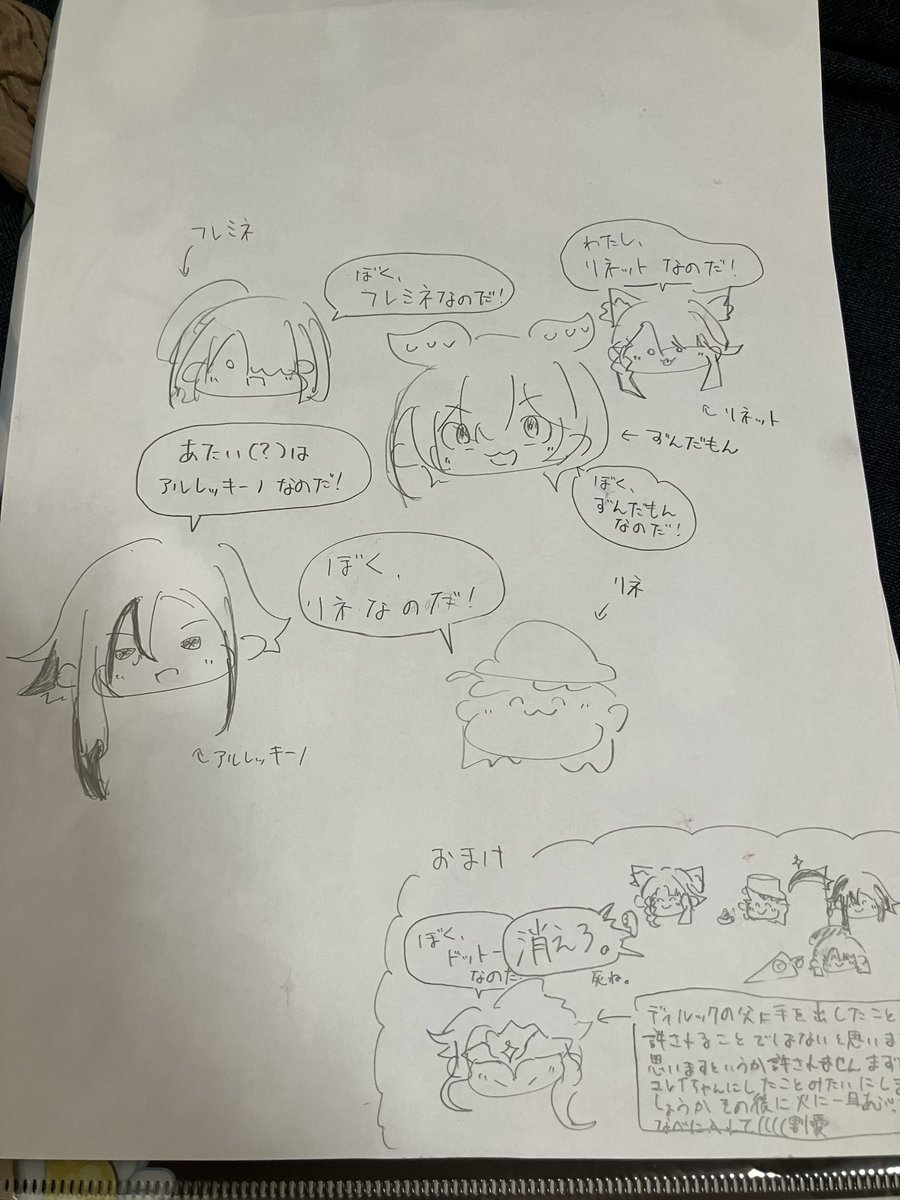 フレミネ
ぼく、
フレミネなのだ!
わたし、
リネット なのだ!
リネット
ずんだもん
ぼく、
ずんだもん
なのだ!
あたい(?)は
アルレッキーノ なのだ!
アルレッキーノ
ぼく、
リネ なのだ!
リネ
おまけ
ぼく、
ドットー
なのだ
消えろ。
死ね。
ディルックの父に手を出したこと
許されることではないと思いま
思いますというか許されません まず
コレイちゃんにしたことみたいにしま
しょうか その後に火に一旦あぶ
なべに入れて((((割愛